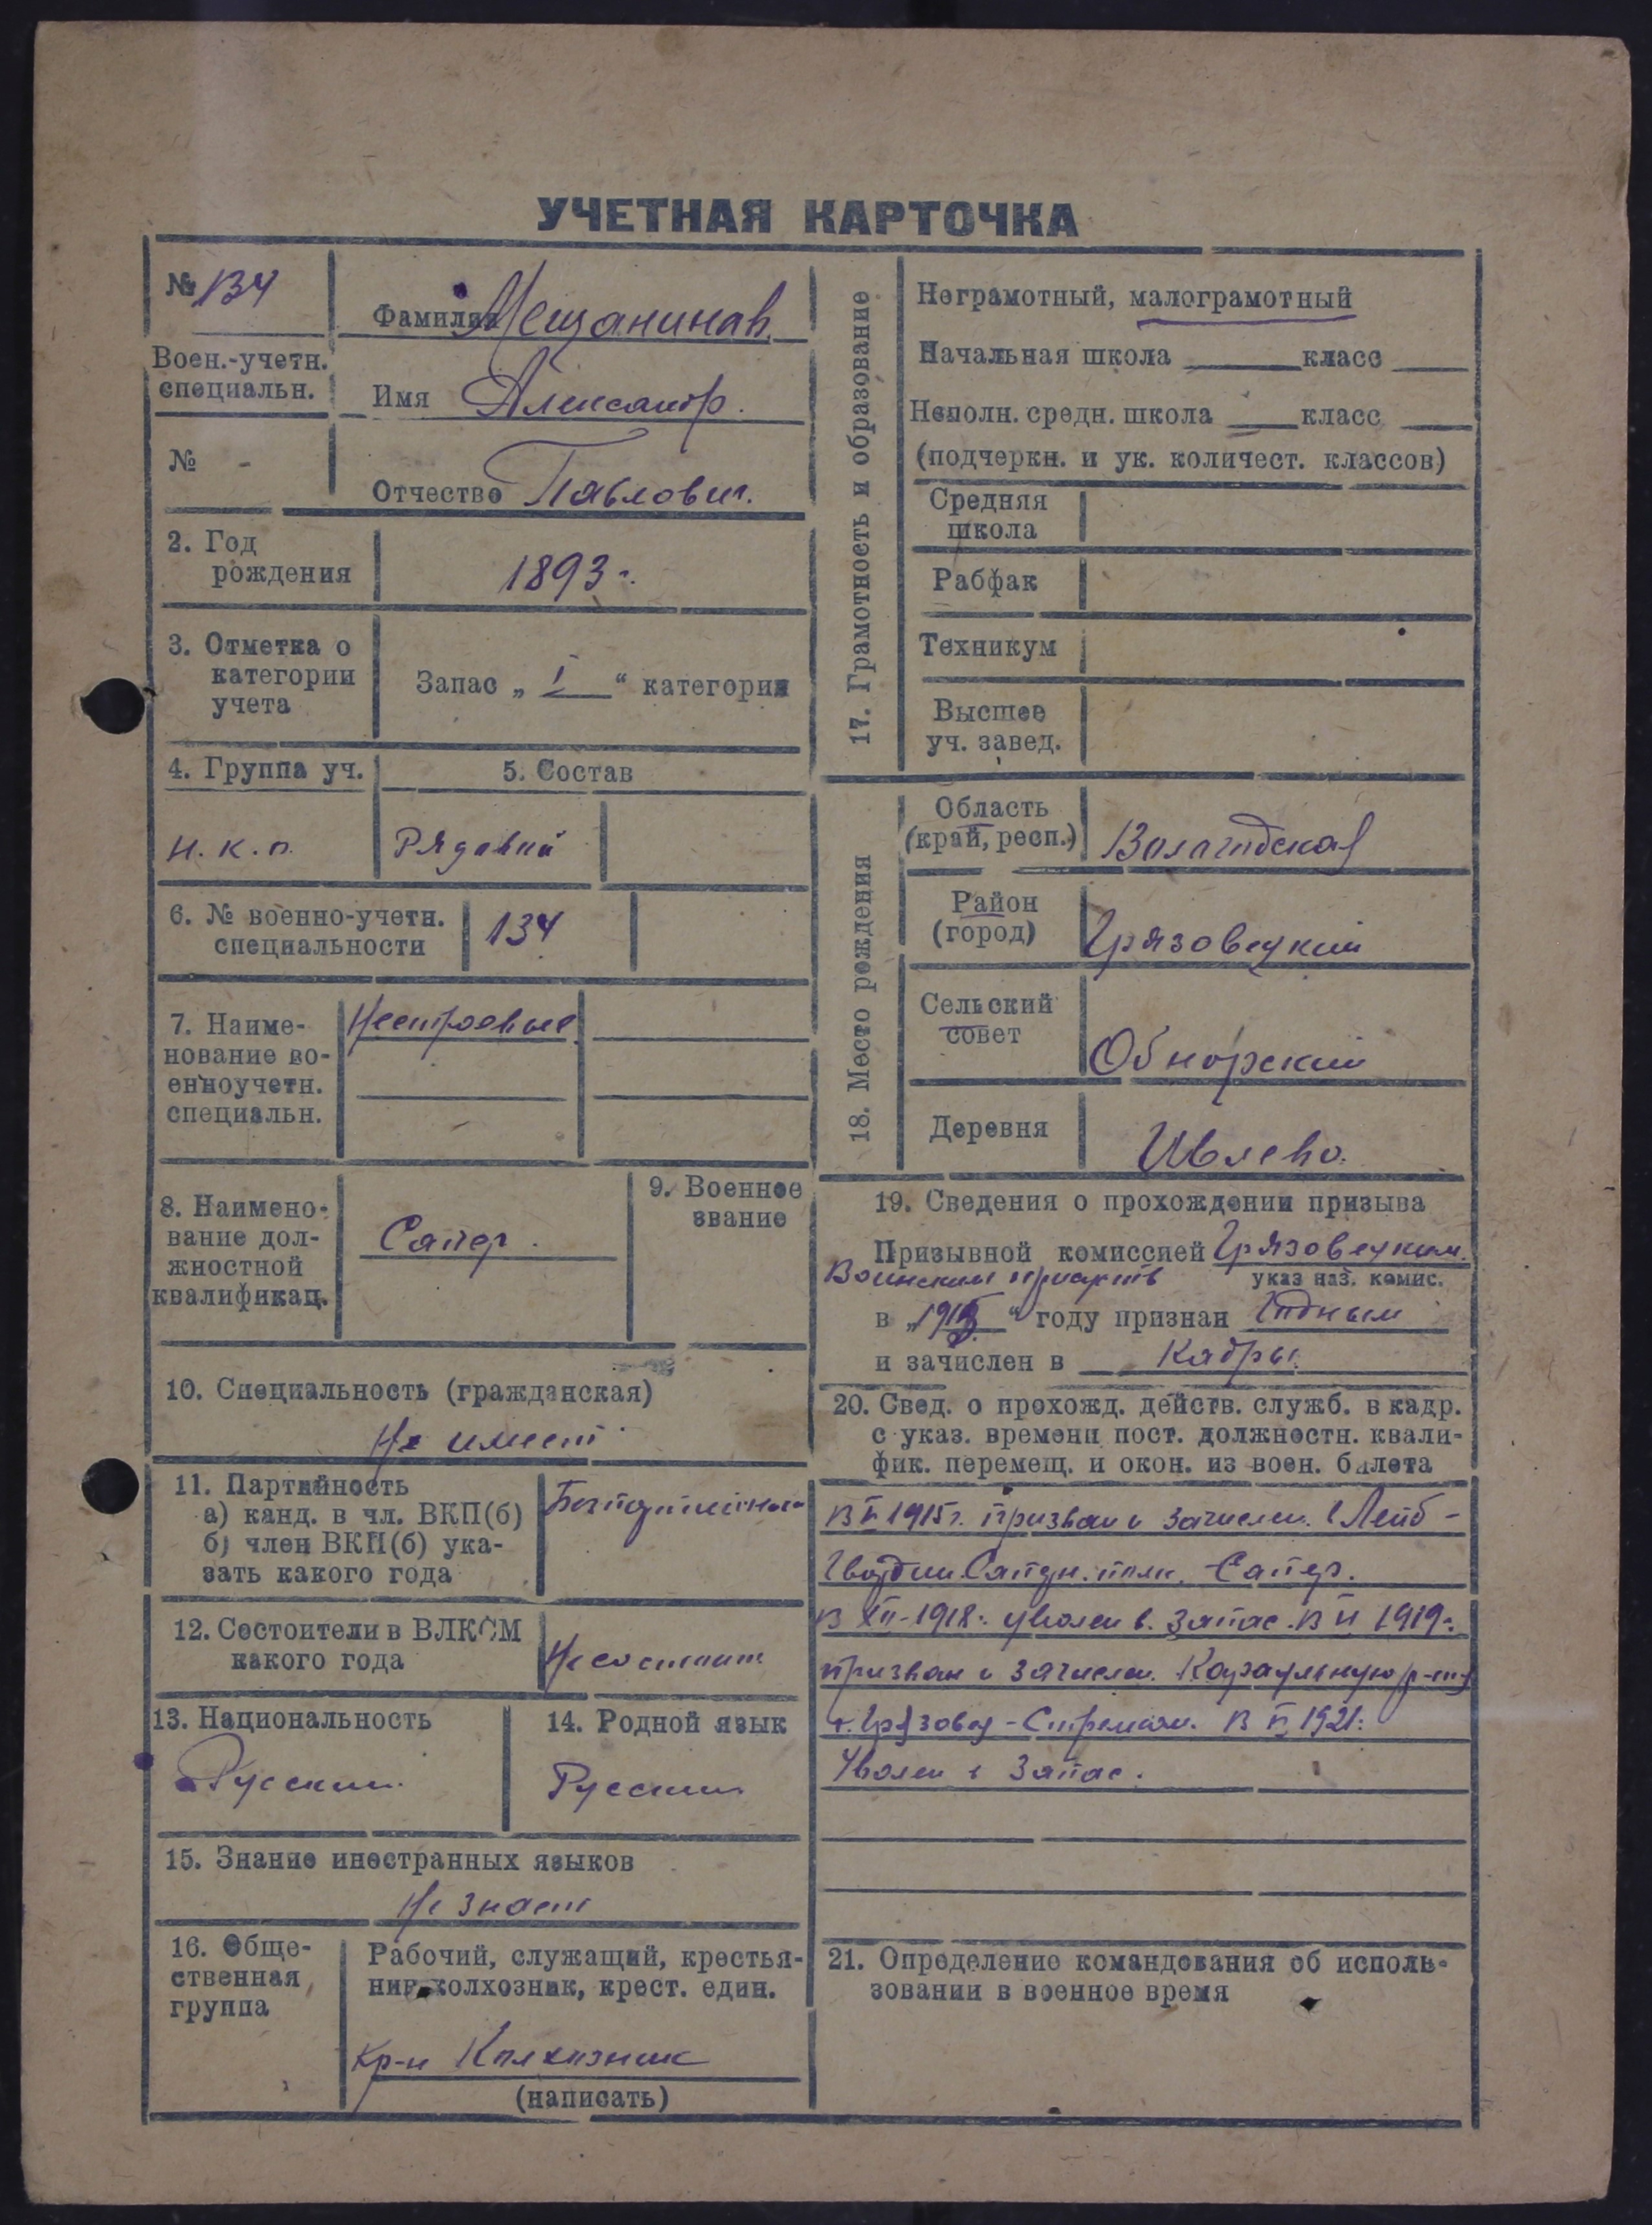 УЧЕТНАЯ КАРТОЧКА
№ 134
Фамилия Мещанинов.
Воен.-учетн.
специальн.
Имя Александр.
№ -
Отчество Павлович.
2. Год
рождения
1893 г.
3. Отметка о
категории
учета
Запас „ I “ категории
4. Группа уч.
5. Состав
Н. К. О.
Рядовой
6. № военно-учетн.
специальности
134
7. Наиме-
нование во-
енноучетн.
специальн.
Нестроевые
8. Наимено-
вание дол-
жностной
квалификац.
Сапер.
9. Военное
звание
10. Специальность (гражданская)
Не имеет
11. Партийность
а) канд. в чл. ВКП(б)
б) член ВКП(б) ука-
зать какого года
Беспартийный
12. Состоители в ВЛКСМ
какого года
Не состоит
13. Национальность
Русский
14. Родной язык
Русский
15. Знание иностранных языков
Не знает
16. Обще-
ственная
группа
Рабочий, служащий, крестья-
нин-колхозник, крест. един.
Кр-н Колхозник
(написать)
17. Грамотность и образование
Неграмотный, малограмотный
Начальная школа класс
Неполн. средн. школа класс
(подчеркн. и ук. количест. классов)
Средняя
школа
Рабфак
Техникум
Высшее
уч. завед.
18. Место рождения
Область
(край, респ.)
Вологодская
Район
(город)
Грязовецкий
Сельский
совет
Обнорский
Деревня
Ивлево.
19. Сведения о прохождении призыва
Призывной комиссией Грязовецким
Воинским
указ наз. комис.
в „ “ году признан Годным
и зачислен в Кадры.
20. Свед. о прохожд. действ. служб. в кадр.
с указ. времени пост. должностн. квали-
фик. перемещ. и окон. из воен. билета
В 1915 г. призван и зачислен в Лейб-
Гвардии Саперн. полк. Сапер.
В XII-1918 г. уволен в запас. В VI 1919 г.
призван и зачислен. Караульную р-ту
г. Грязовец - Стрелком. В 1921 г.
Уволен в Запас.
21. Определение командования об исполь-
зовании в военное время